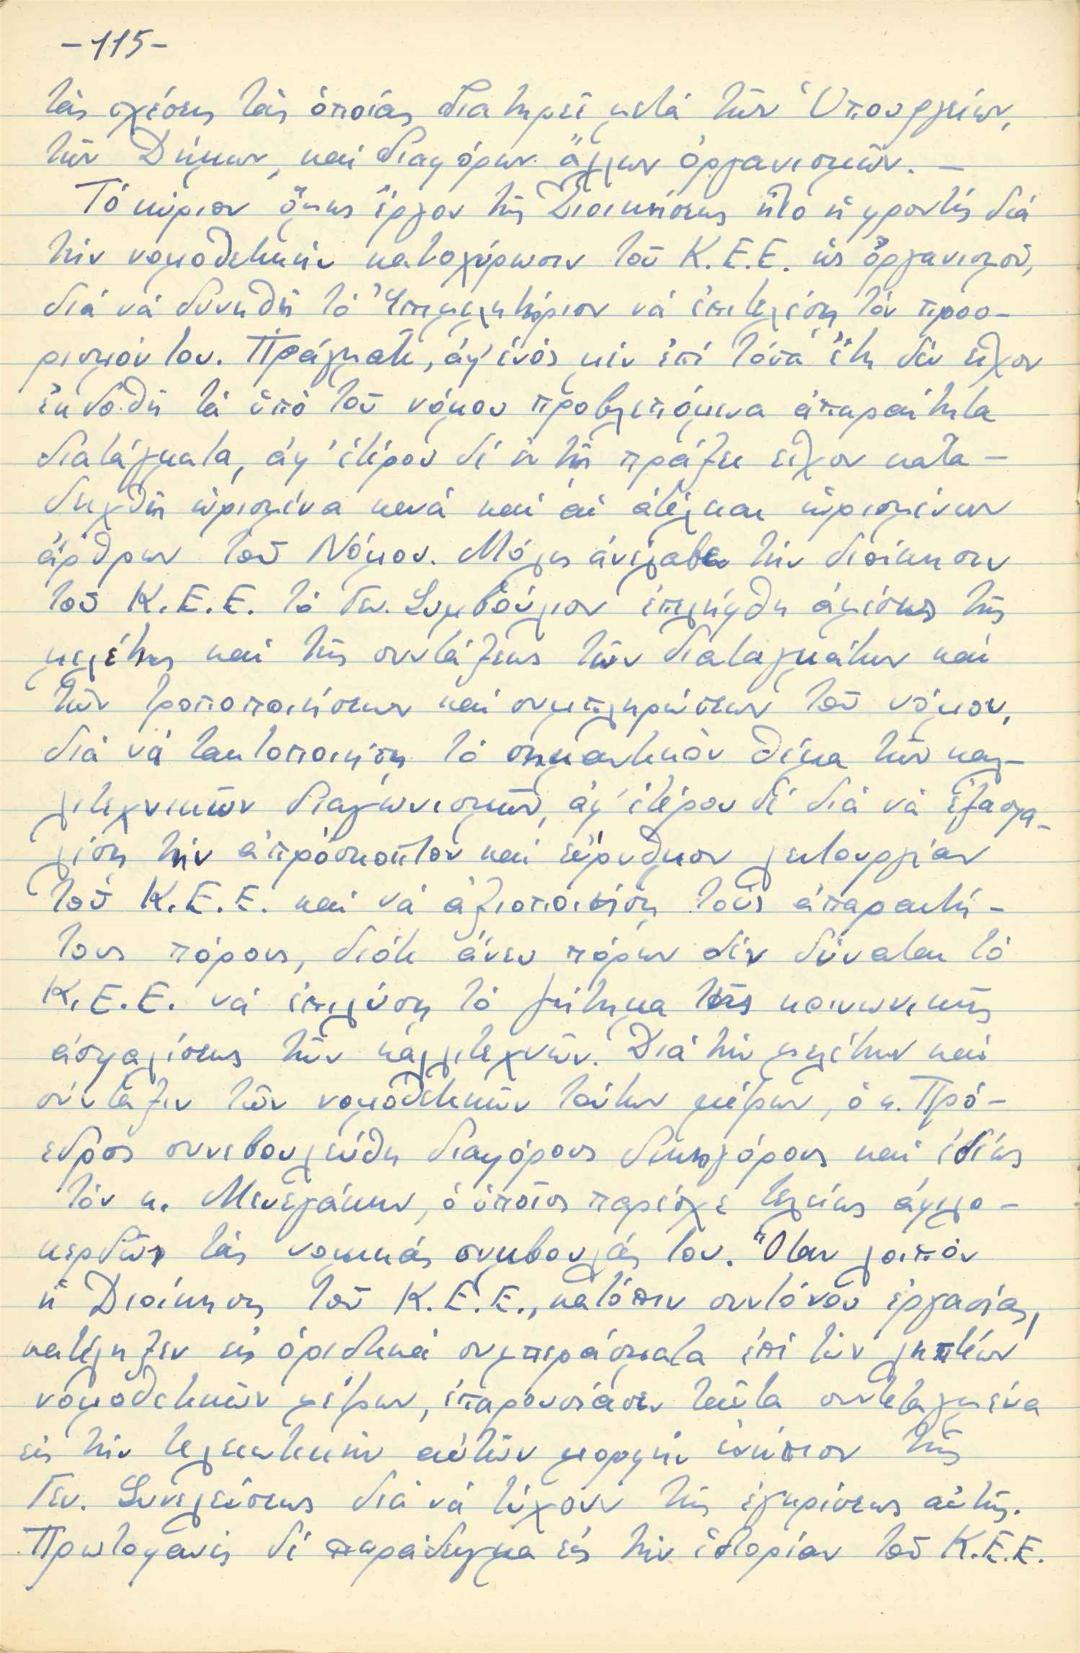 -115-
τάς σχέσεις τάς ὁποίας διατηρεῖ μετά τῶν Ὑπουργείων,
τῶν Δήμων, καί διαφόρων ἄλλων ὀργανισμῶν. —
Τό κύριον ὅμως ἔργον τῆς Διοικήσεως ἦτο ἡ φροντίς διά
τήν νομοθετικήν κατοχύρωσιν τοῦ Κ.Ε.Ε. ὡς ὀργανισμοῦ,
διά νά δυνηθῆ τό Ἐπιμελητήριον νά ἐπιτελέση τόν προο-
ρισμόν του. Πράγματι, ἀφ' ἑνός μέν ἐπί τόσα ἔτη δέν εἶχον
ἐκδοθῆ τά ὑπό τοῦ νόμου προβλεπόμενα ἀπαραίτητα
διατάγματα, ἀφ' ἑτέρου δέ ἐν τῆ πράξει εἶχον κατα-
δειχθῆ ὡρισμένα κενά καί αἱ ἀτέλειαι ὡρισμένων
ἄρθρων τοῦ Νόμου. Μόλις ἀνέλαβε τήν διοίκησιν
τοῦ Κ.Ε.Ε. τό Γεν. Συμβούλιον ἐπελήφθη ἀμέσως τῆς
μελέτης καί τῆς συντάξεως τῶν διαταγμάτων καί
τῶν τροποποιήσεων καί συμπληρώσεων τοῦ νόμου,
διά νά τακτοποιήση τό σημαντικόν θέμα τῶν καλ-
λιτεχνικῶν διαγωνισμῶν, ἀφ' ἑτέρου δέ διά νά ἐξασφα-
λίση τήν ἀπρόσκοπτον καί εὔρυθμον λειτουργίαν
τοῦ Κ.Ε.Ε. καί νά ἀξιοποιήση τούς ἀπαραιτή-
τους πόρους, διότι ἄνευ πόρων δέν δύναται τό
Κ.Ε.Ε. νά ἐπιλύση τό ζήτημα τῆς κοινωνικῆς
ἀσφαλίσεως τῶν καλλιτεχνῶν. Διά τήν μελέτην καί
σύνταξιν τῶν νομοθετικῶν τούτων μέτρων, ὁ κ. Πρό-
εδρος συνεβουλεύθη διαφόρους δικηγόρους καί ἰδίως
τόν κ. Μενεγάκην, ὁ ὁποῖος παρέσχε τελείως ἀφιλο-
κερδῶς τάς νομικάς συμβουλάς του. Ὅταν λοιπόν
ἡ Διοίκησις τοῦ Κ.Ε.Ε., κατόπιν συντόνου ἐργασίας,
κατέληξεν εἰς ὁριστικά συμπεράσματα ἐπί τῶν ληπτέων
νομοθετικῶν μέτρων, ἐπαρουσίασεν ταῦτα συντεταγμένα
εἰς τήν τελειωτικήν αὐτῶν μορφήν ἐνώπιον τῆς
Γεν. Συνελεύσεως διά νά τύχουν τῆς ἐγκρίσεως αὐτῆς.
Πρωτοφανές δέ παράδειγμα εἰς τήν ἱστορίαν τοῦ Κ.Ε.Ε.